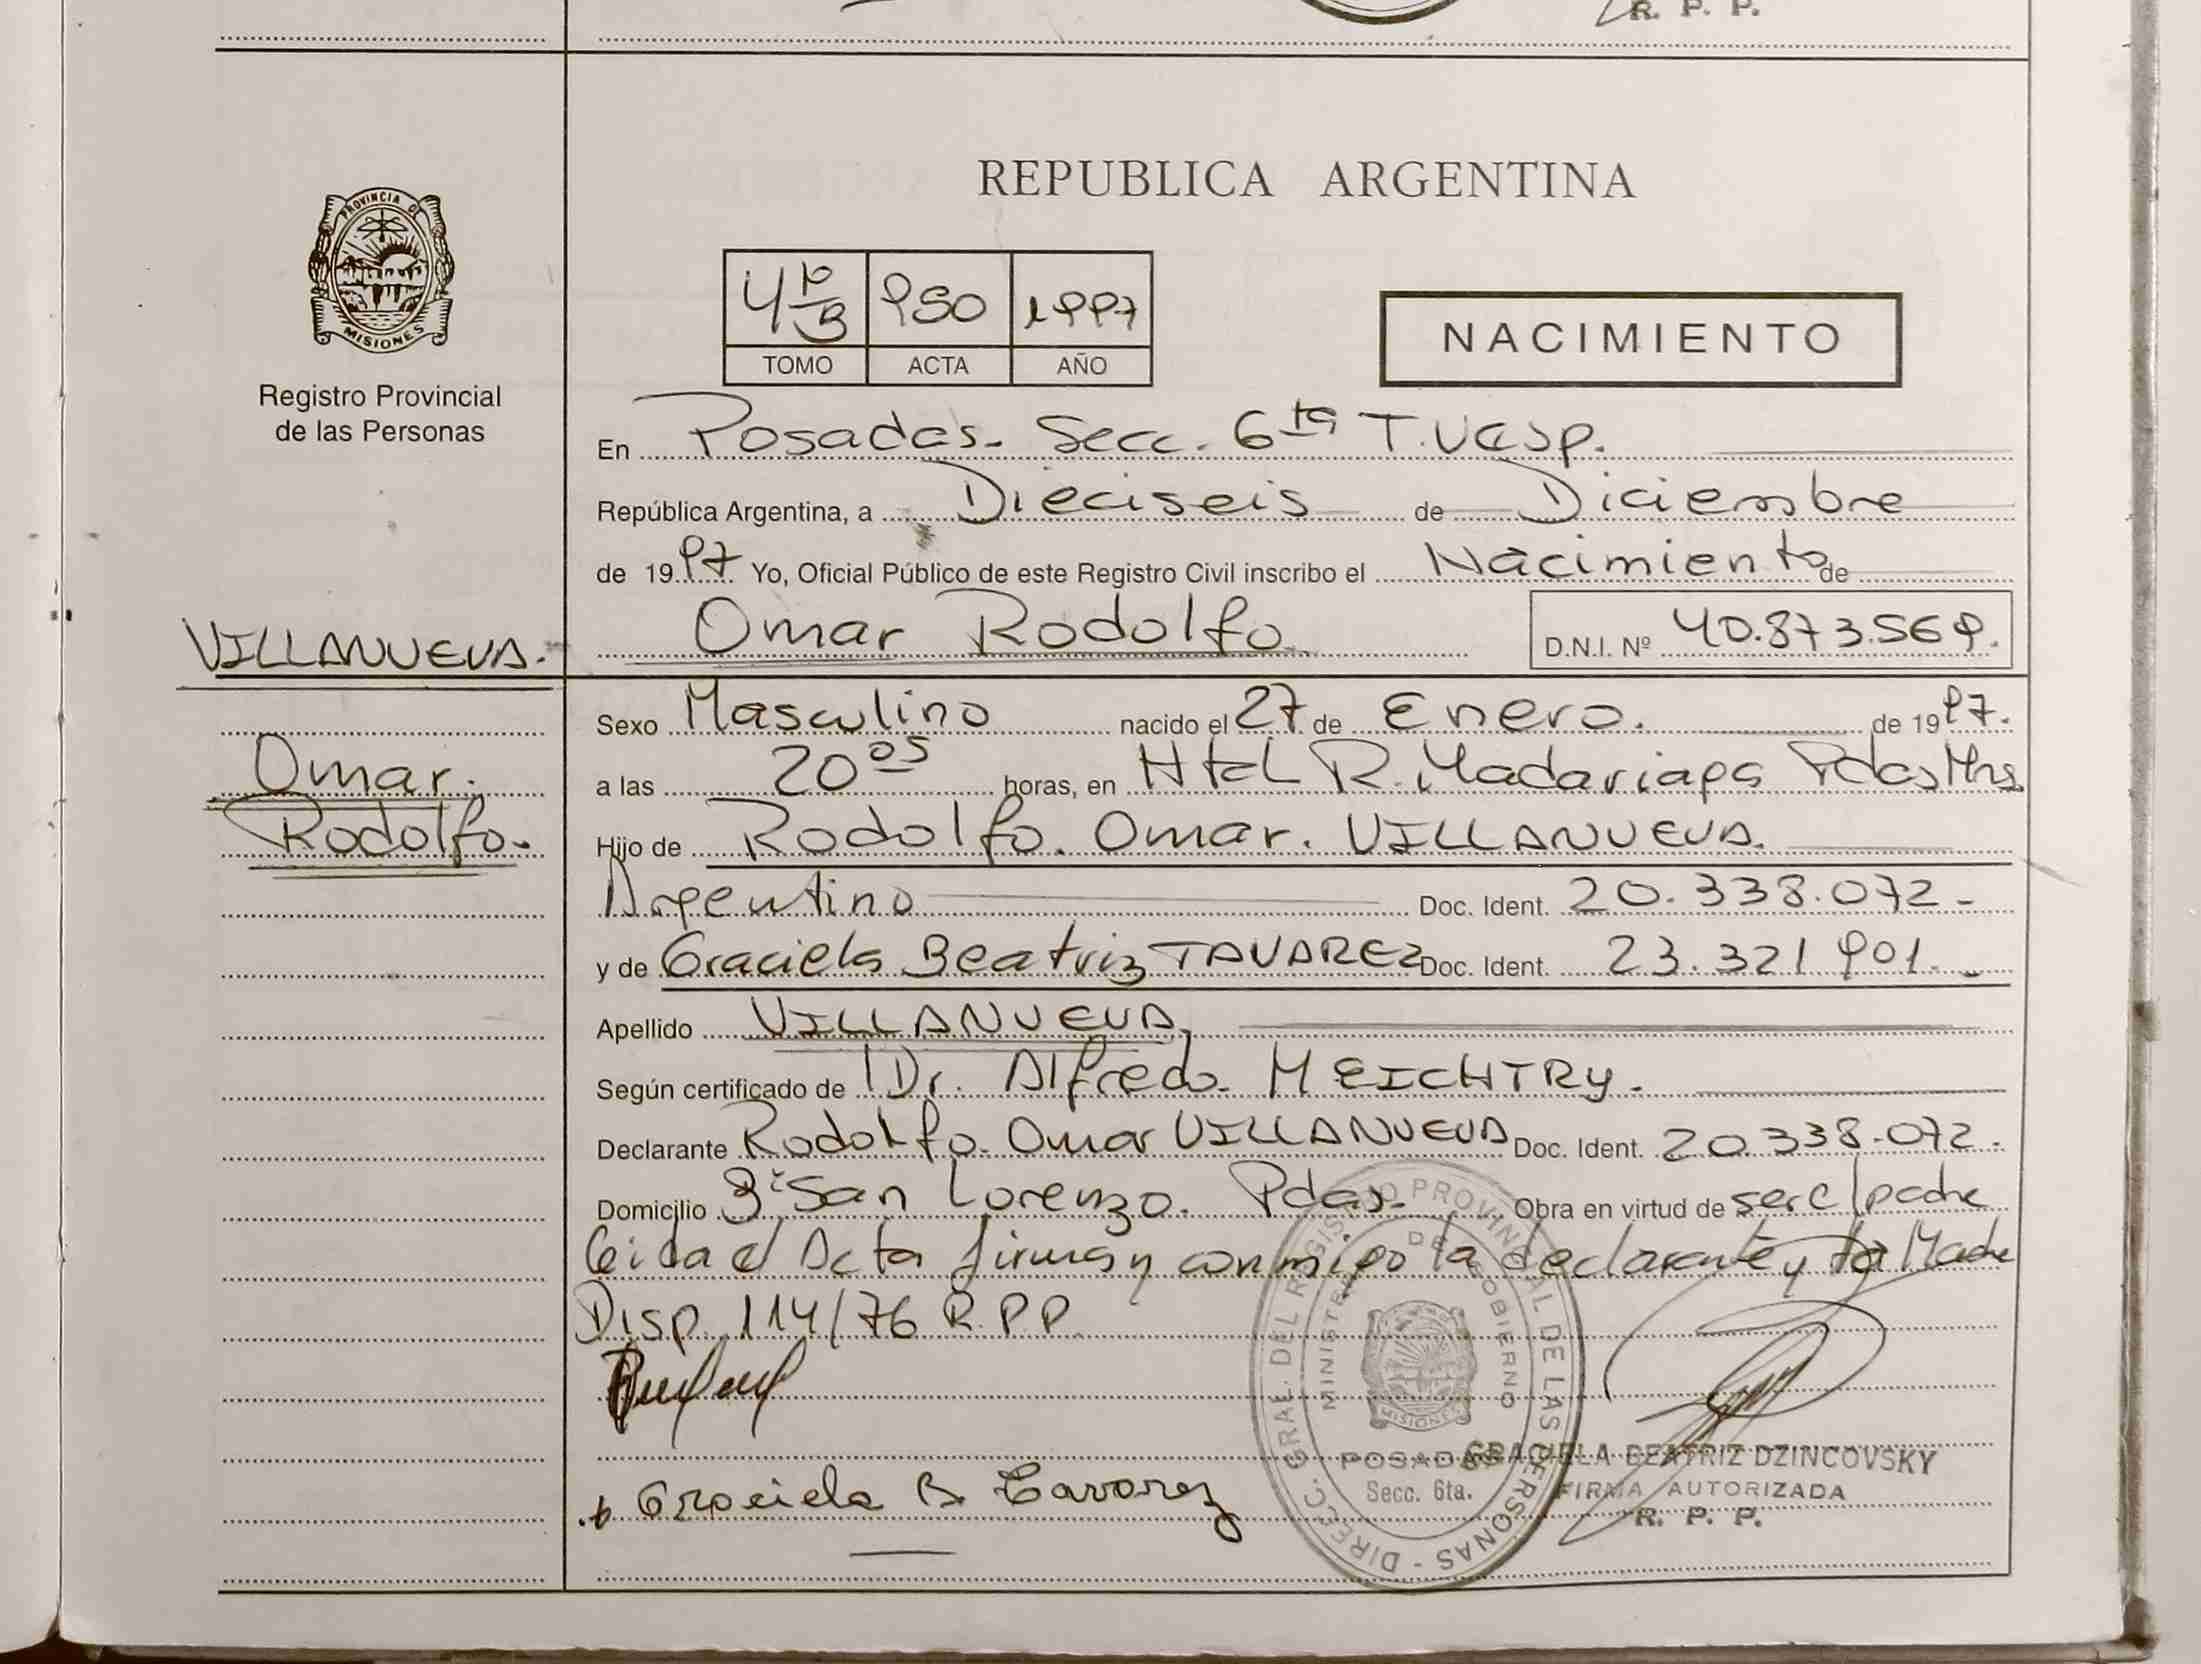 R. P. P.
REPUBLICA ARGENTINA
PROVINCIA DE
MISIONES
Registro Provincial
de las Personas
4º B 950 1997
TOMO ACTA AÑO
NACIMIENTO
En Posadas- Secc. 6ta T. Vesp.
República Argentina, a Dieciseis de Diciembre
de 1997 Yo, Oficial Público de este Registro Civil inscribo el Nacimiento de
VILLANUEVA.
Omar Rodolfo D.N.I. Nº 40.873.569.
Sexo Masculino nacido el 27 de Enero. de 1997.
Omar.
a las 20 05 horas, en Htal R. Madariaga Pdas Mns
Rodolfo.
Hijo de Rodolfo. Omar. VILLANUEVA.
Argentino Doc. Ident. 20.338.072-
y de Graciela Beatriz TAVAREZ Doc. Ident. 23.321 901.-
Apellido VILLANUEVA
Según certificado de Dr. Alfredo MEICHTRY.
Declarante Rodolfo. Omar VILLANUEVA Doc. Ident. 20.338.072-
Domicilio Bº San Lorenzo. Pdas. Obra en virtud de ser el padre
leida el Acta firman conmigo la declarante y la Madre
Disp. 114/76 R.P.P.
Graciela B. Tavarez
DIRECC. GRAL. DEL REGISTRO PROVINCIAL DE LAS PERSONAS
MINISTERIO DE GOBIERNO
MISIONES
POSADAS
Secc. 6ta.
GRACIELA BEATRIZ DZINCOVSKY
FIRMA AUTORIZADA
R. P. P.